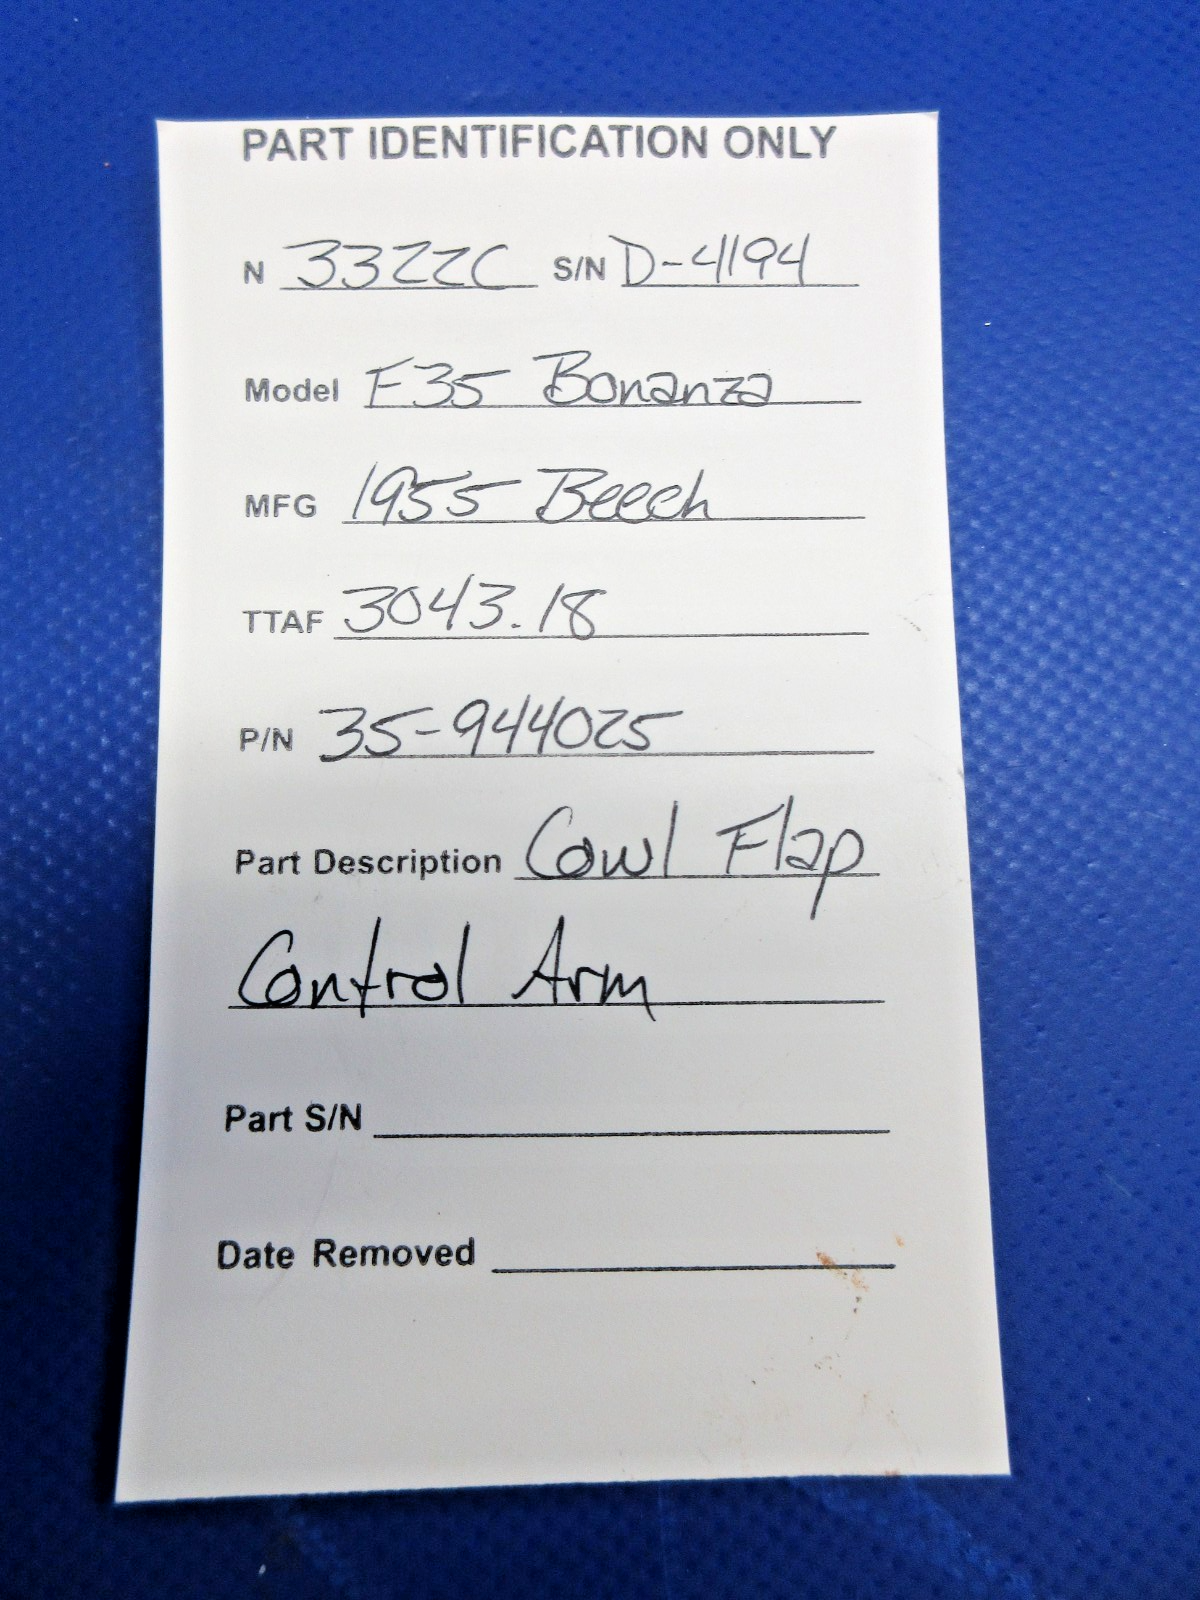 PART IDENTIFICATION ONLY
N 3322C S/N D-4194
Model F35 Bonanza
MFG 1955 Beech
TTAF 3043.18
P/N 35-944025
Part Description Cowl Flap
Control Arm
Part S/N
Date Removed